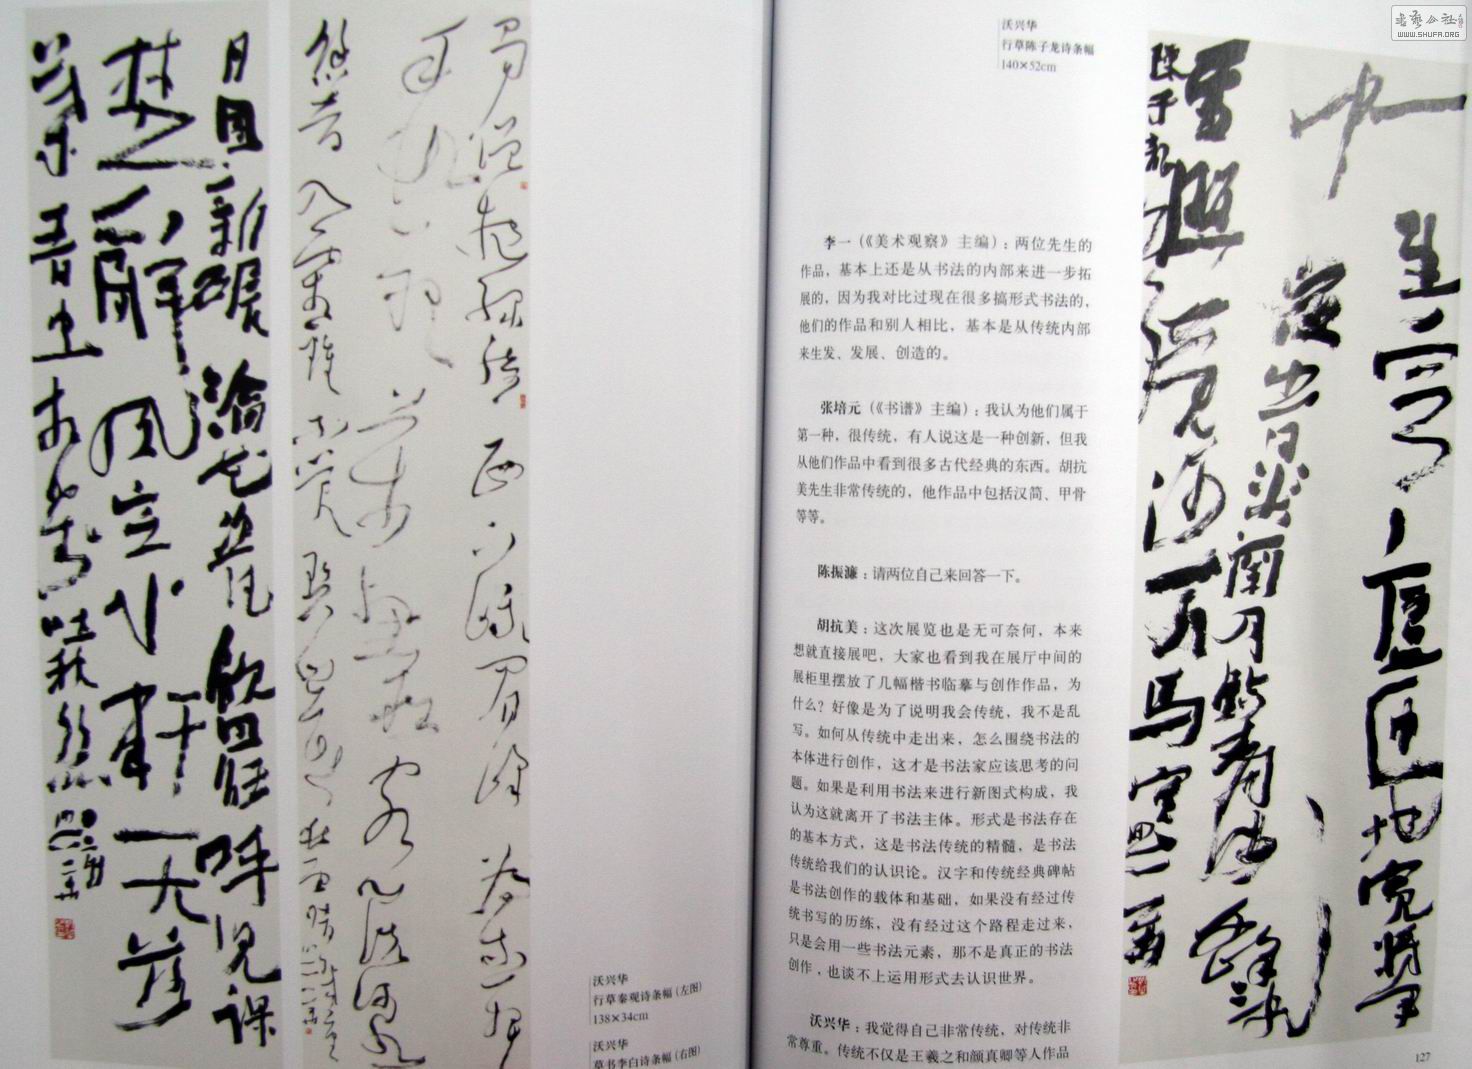 月團新碾瀹花瓷飲罷呼兒課
楚辭風定小軒無落
葉青蟲相對吐秋絲
蜀僧抱綠綺西下峨眉峰為我一揮
手如聽萬壑松客心洗流水
入霜鐘不覺碧山暮秋雲暗幾重
沃兴华
行草秦观诗条幅（左图）
138×34cm
沃兴华
草书李白诗条幅（右图）
沃兴华
行草陈子龙诗条幅
140×52cm
李一（《美术观察》主编）：两位先生的
作品，基本上还是从书法的内部来进一步拓
展的，因为我对比过现在很多搞形式书法的，
他们的作品和别人相比，基本是从传统内部
来生发、发展、创造的。
张培元（《书谱》主编）：我认为他们属于
第一种，很传统，有人说这是一种创新，但我
从他们作品中看到很多古代经典的东西。胡抗
美先生非常传统的，他作品中包括汉简、甲骨
等等。
陈振濂：请两位自己来回答一下。
胡抗美：这次展览也是无可奈何，本来
想就直接展吧，大家也看到我在展厅中间的
展柜里摆放了几幅楷书临摹与创作作品，为
什么？好像是为了说明我会传统，我不是乱
写。如何从传统中走出来，怎么围绕书法的
本体进行创作，这才是书法家应该思考的问
题。如果是利用书法来进行新图式构成，我
认为这就离开了书法主体。形式是书法存在
的基本方式，这是书法传统的精髓，是书法
传统给我们的认识论。汉字和传统经典碑帖
是书法创作的载体和基础，如果没有经过传
统书写的历练，没有经过这个路程走过来，
只是会用一些书法元素，那不是真正的书法
创作，也谈不上运用形式去认识世界。
沃兴华：我觉得自己非常传统，对传统非
常尊重。传统不仅是王羲之和颜真卿等人作品
生穹廬匝地寬將軍
夜出
雪照河萬馬寒
陳子龍
127
书艺公社
WWW.SHUFA.ORG